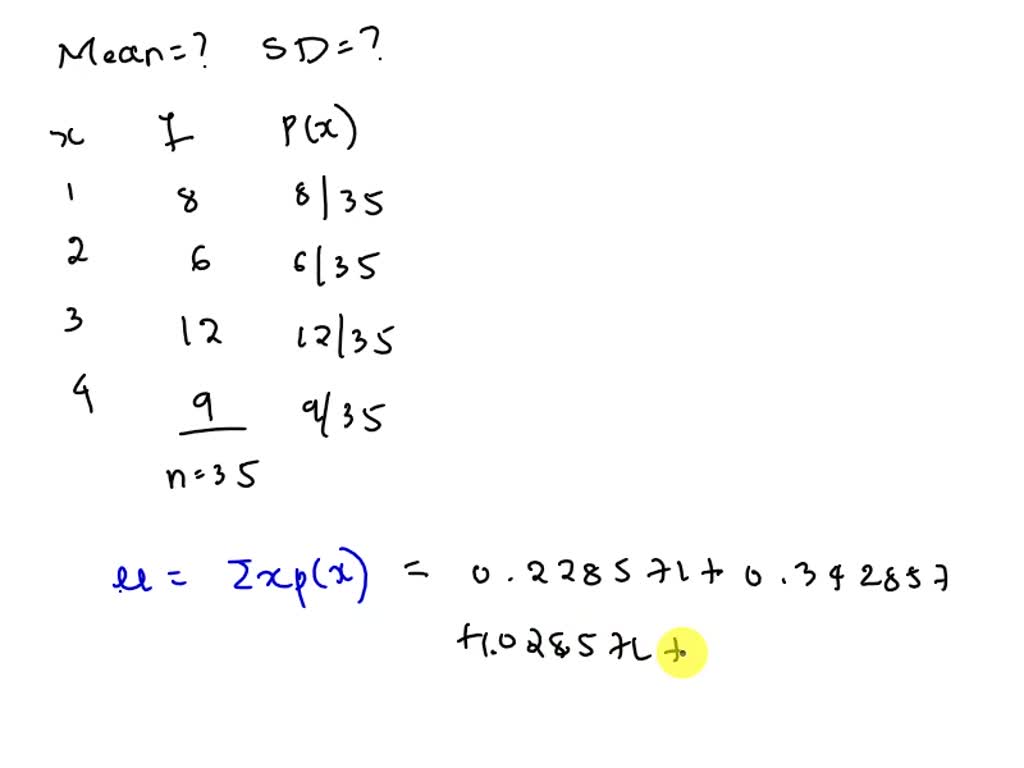 Mean=? SD=?
x f P(x)
1 8 8/35
2 6 6/35
3 12 12/35
4 9 9/35
n=35
μ = Σxp(x) = 0.228571+0.342857
+1.028571+